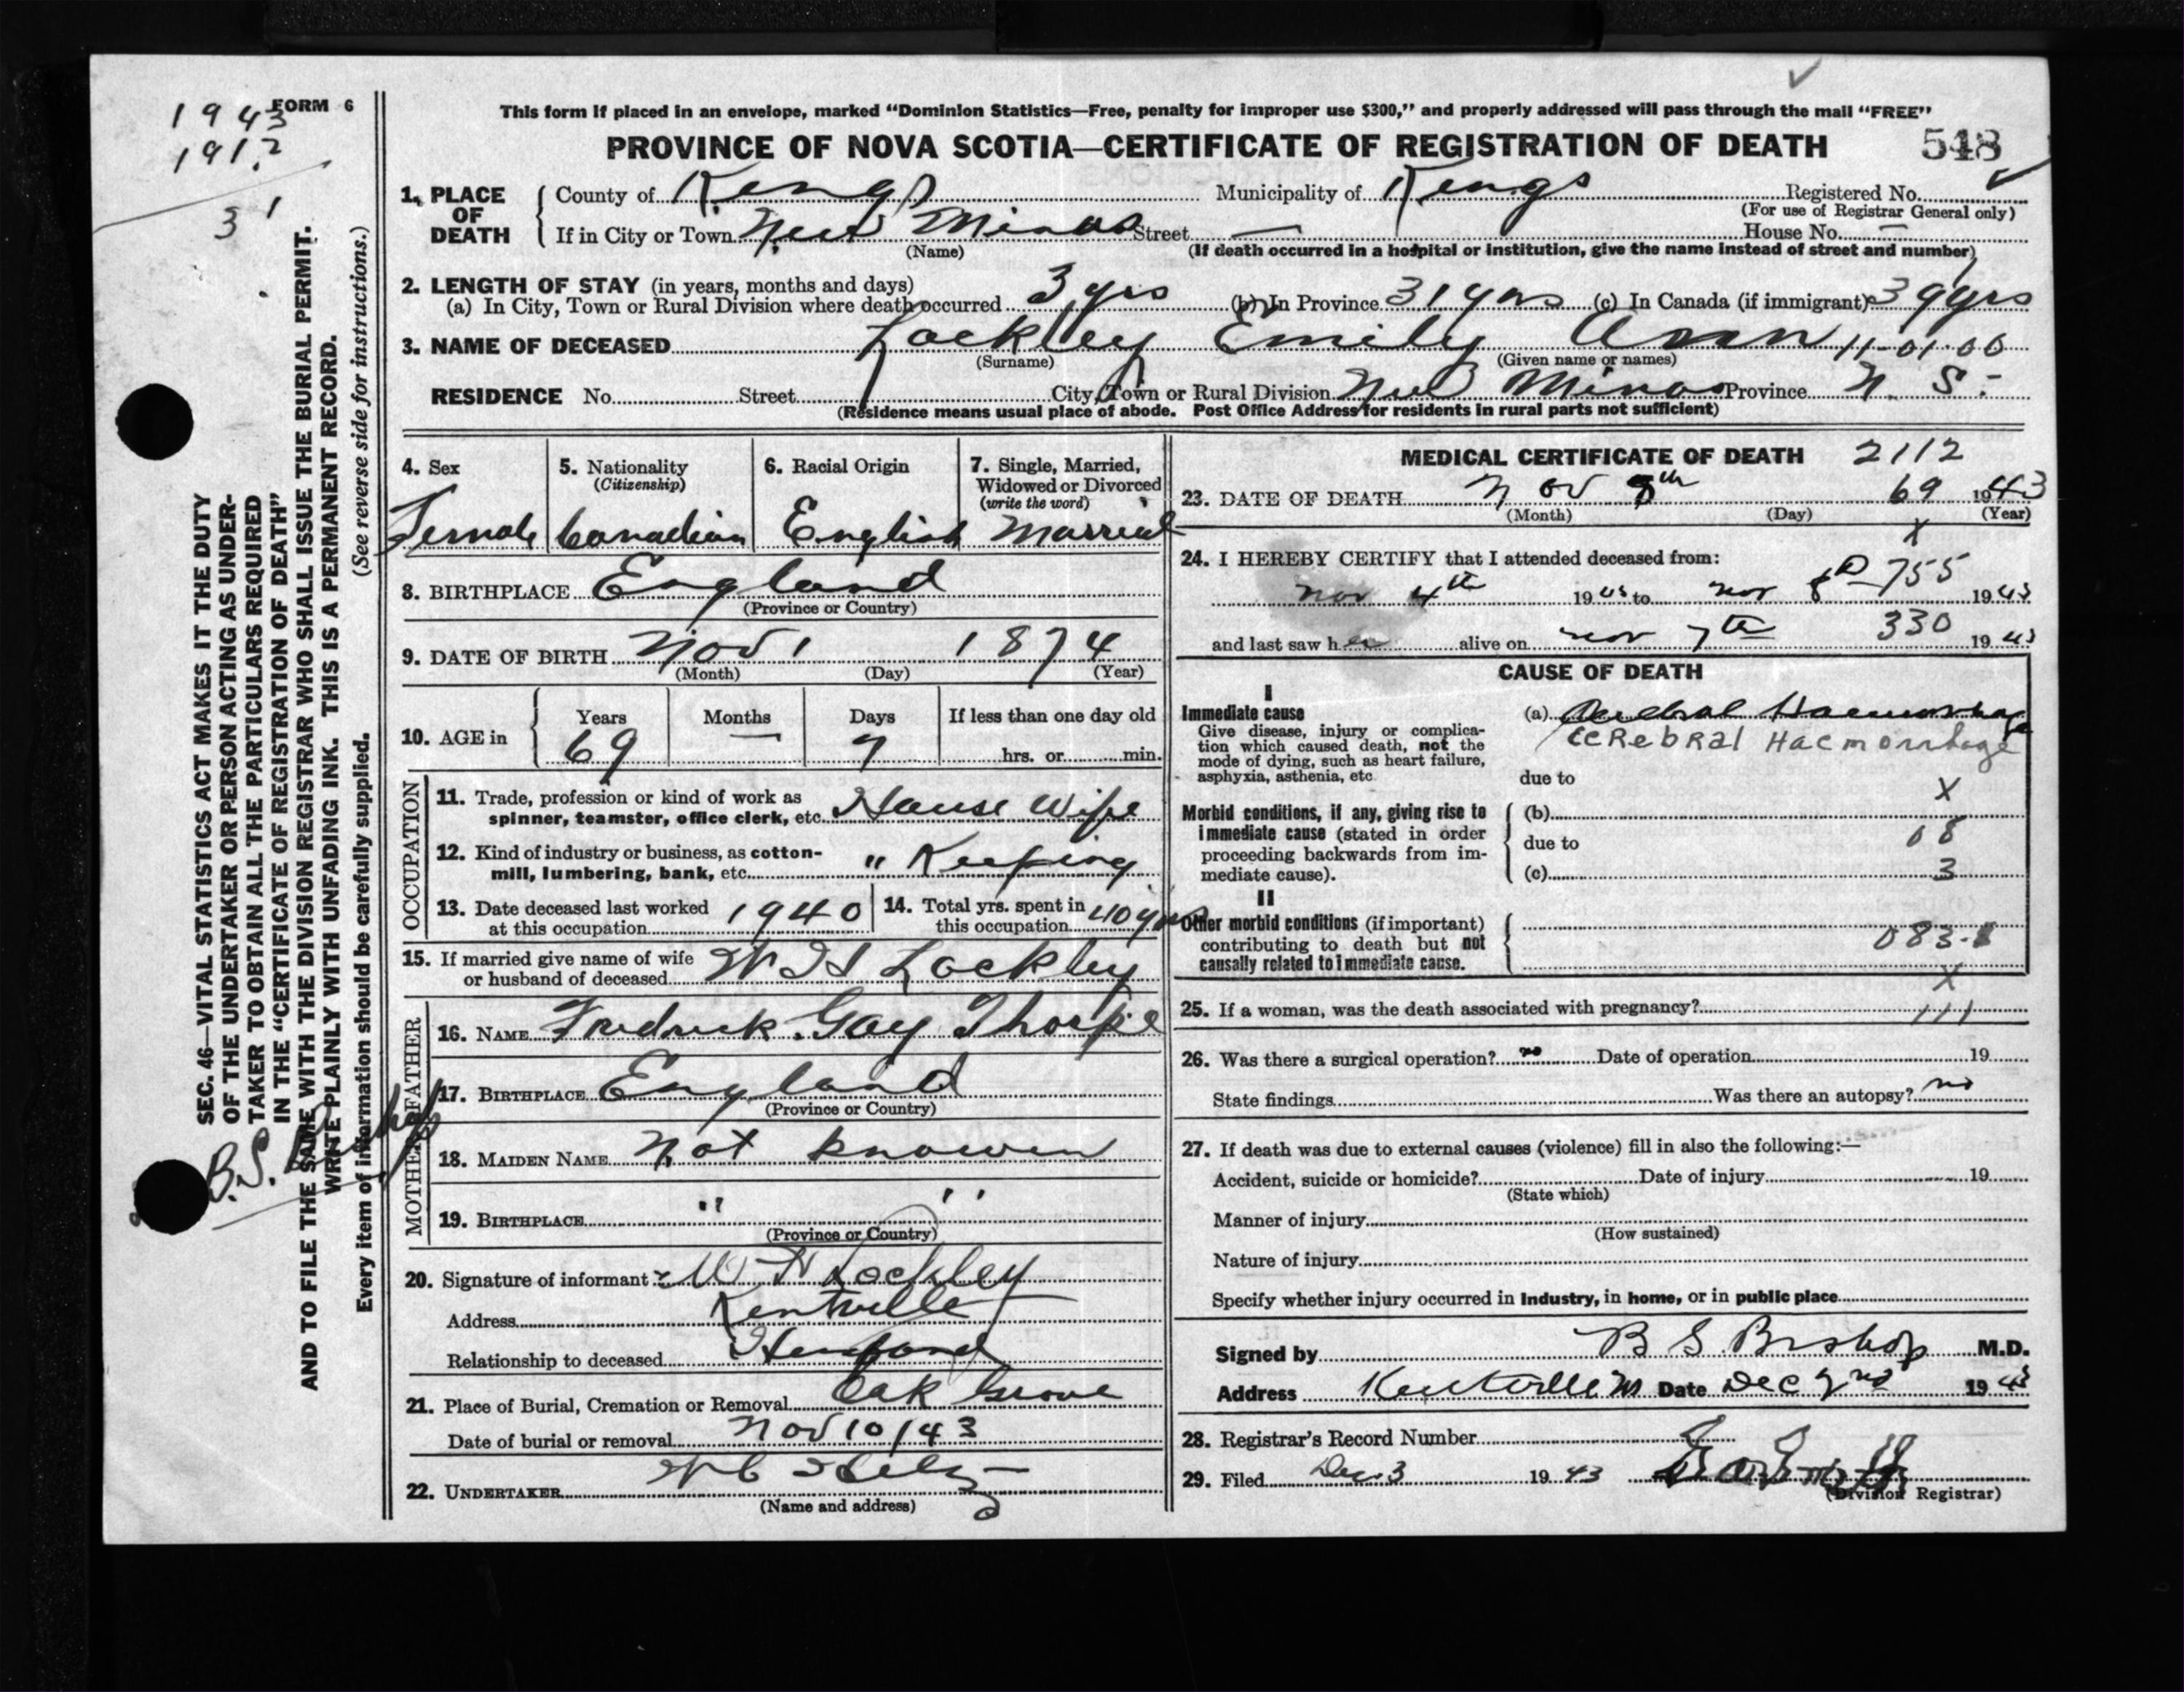 FORM 6
1943
1912
31
This form if placed in an envelope, marked "Dominion Statistics—Free, penalty for improper use $300," and properly addressed will pass through the mail "FREE"
PROVINCE OF NOVA SCOTIA—CERTIFICATE OF REGISTRATION OF DEATH 548
1. PLACE OF DEATH County of Kings Municipality of Kings Registered No.
(For use of Registrar General only)
If in City or Town New Minas Street — House No. —
(Name) (If death occurred in a hospital or institution, give the name instead of street and number)
2. LENGTH OF STAY (in years, months and days)
(a) In City, Town or Rural Division where death occurred 3 yrs (b) In Province 31 yrs (c) In Canada (if immigrant) 39 yrs
3. NAME OF DECEASED Lockley Emily Ann 11-01-00
(Surname) (Given name or names)
RESIDENCE No. Street City, Town or Rural Division New Minas Province N. S.
(Residence means usual place of abode. Post Office Address for residents in rural parts not sufficient)
4. Sex
Female
5. Nationality
(Citizenship)
Canadian
6. Racial Origin
English
7. Single, Married,
Widowed or Divorced
(write the word)
Married
8. BIRTHPLACE England
(Province or Country)
9. DATE OF BIRTH Nov 1 1874
(Month) (Day) (Year)
10. AGE in Years Months Days If less than one day old
69 — 7 hrs. or min.
OCCUPATION
11. Trade, profession or kind of work as
spinner, teamster, office clerk, etc. House Wife
12. Kind of industry or business, as cotton-
mill, lumbering, bank, etc. " Keeping
13. Date deceased last worked
at this occupation 1940
14. Total yrs. spent in
this occupation 40 yrs
15. If married give name of wife
or husband of deceased W H Lockley
FATHER
16. NAME Fredrick Gay Thorpe
17. BIRTHPLACE England
(Province or Country)
MOTHER
18. MAIDEN NAME Not known
19. BIRTHPLACE " "
(Province or Country)
20. Signature of informant W H Lockley
Address Kentville
Relationship to deceased Husband
21. Place of Burial, Cremation or Removal Oak Grove
Date of burial or removal Nov 10/43
22. UNDERTAKER
(Name and address)
MEDICAL CERTIFICATE OF DEATH 2112
23. DATE OF DEATH Nov 8th 69 1943
(Month) (Day) (Year)
X
24. I HEREBY CERTIFY that I attended deceased from:
Nov 4th 1943 to Nov 8 755 1943
and last saw her alive on Nov 7th 330 1943
CAUSE OF DEATH
I
Immediate cause
Give disease, injury or complica-
tion which caused death, not the
mode of dying, such as heart failure,
asphyxia, asthenia, etc.
(a) Cerebral Haemorrhage
Cerebral Haemorrhage
due to
X
Morbid conditions, if any, giving rise to
immediate cause (stated in order
proceeding backwards from im-
mediate cause).
(b)
due to 08
(c) 3
II
Other morbid conditions (if important)
contributing to death but not
causally related to immediate cause.
083-
X
25. If a woman, was the death associated with pregnancy? 111
26. Was there a surgical operation? no Date of operation 19
State findings Was there an autopsy? no
27. If death was due to external causes (violence) fill in also the following:—
Accident, suicide or homicide? Date of injury 19
(State which)
Manner of injury
(How sustained)
Nature of injury
Specify whether injury occurred in Industry, in home, or in public place
Signed by B S Bishop M.D.
Address Kentville NS Date Dec 2nd 1943
28. Registrar's Record Number
29. Filed Dec. 3 1943
(Division Registrar)
SEC. 46—VITAL STATISTICS ACT MAKES IT THE DUTY
OF THE UNDERTAKER OR PERSON ACTING AS UNDER-
TAKER TO OBTAIN ALL THE PARTICULARS REQUIRED
IN THE "CERTIFICATE OF REGISTRATION OF DEATH"
AND TO FILE THE SAME WITH THE DIVISION REGISTRAR WHO SHALL ISSUE THE BURIAL PERMIT.
WRITE PLAINLY WITH UNFADING INK. THIS IS A PERMANENT RECORD.
Every item of information should be carefully supplied. (See reverse side for instructions.)
B.S. Bishop